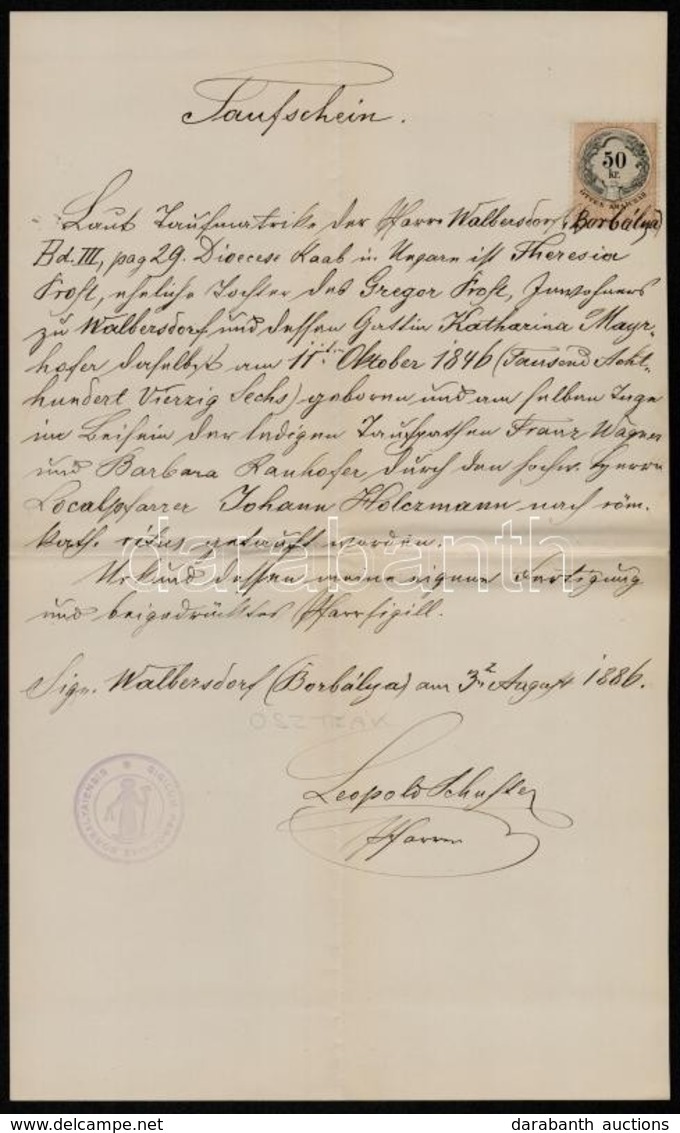 Taufschein.
50
kr.
ÖTVEN KRAJCZÁR
Laut Taufmatrike der Pfarre Walbersdorf (Borbólya)
Bd. III, pag 29. Dioecese Raab in Ungarn ist Theresia
Frost, eheliche Tochter des Gregor Frost, Inwohners
zu Walbersdorf und dessen Gattin Katharina Mayr-
hofer daselbst am 11ten Oktober 1846 (Tausend Acht-
hundert Vierzig Sechs) geboren und am selben Tage
im Beisein der ledigen Taufpathen Franz Wagner
und Barbara Ranhofer durch den hochw. Herrn
Localpfarrer Johann Holczmann nach röm.
kath. ritus getauft worden.
Urkund dessen meine eigene Fertigung
und beigedrücktes Pfarrsigill.
Sign. Walbersdorf (Borbólya) am 3. August 1886.
Leopold Schuster
Pfarrer
SIGILLUM
darabanth
darabanth auctions